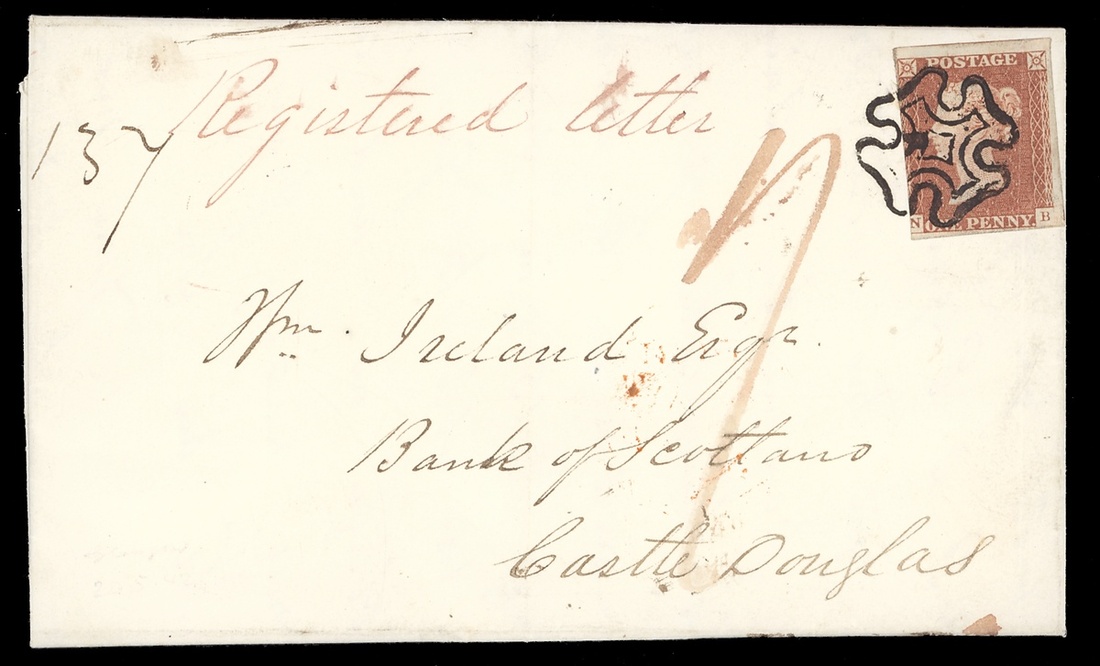 POSTAGE
N ONE PENNY. B
Registered letter
137
Wm. Ireland Esqr.
Bank of Scotland
Castle Douglas